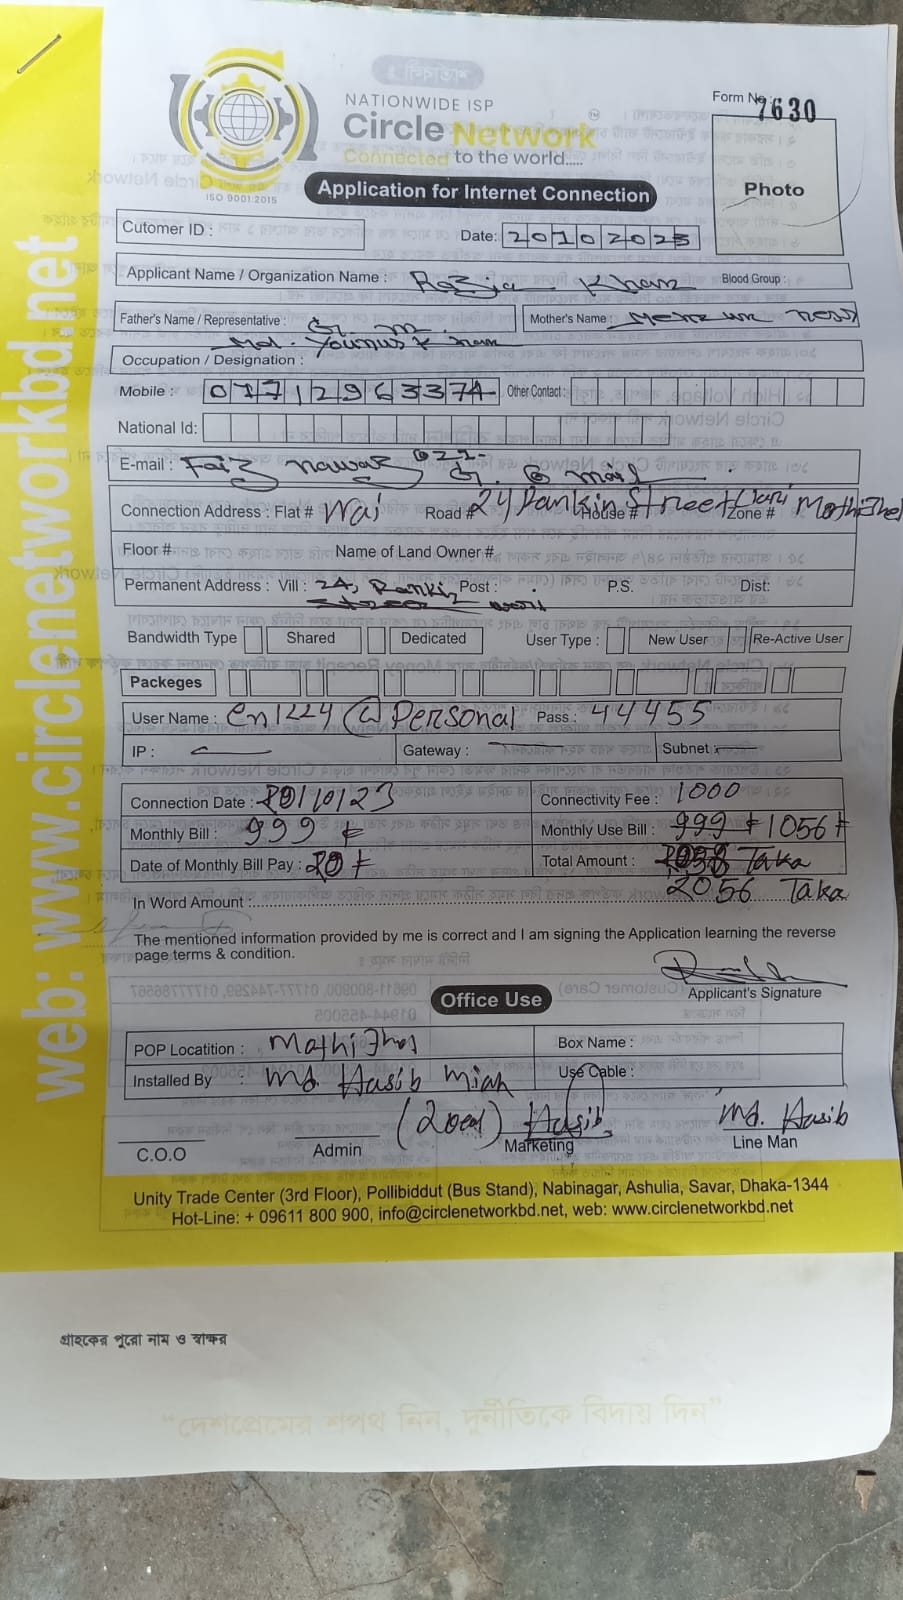 Form No.: 7630
NATIONWIDE ISP
Circle Network
Connected to the world.....
ISO 9001:2015
Photo
Application for Internet Connection
Cutomer ID :
Date: 20102023
Applicant Name / Organization Name : Razia Khan Blood Group :
Father's Name / Representative : Md. Younus Mother's Name :
Occupation / Designation :
Mobile : 01712963374 Other Contact:
National Id:
E-mail : Faiz nawaz 021- G. @ mail
Connection Address : Flat # Wari Road # 24 Rankin Street Wari House # Zone # Mothijhel
Floor # Name of Land Owner #
Permanent Address : Vill : 24, Rankin Post : P.S. Dist:
Street
Bandwidth Type Shared Dedicated User Type : New User Re-Active User
Packeges
User Name : cn1224@Personal Pass : 44455
IP : — Gateway : — Subnet : —
Connection Date : 20/10/23 Connectivity Fee : 1000
Monthly Bill : 999 ৳ Monthly Use Bill : 999 ৳ 1056 ৳
Date of Monthly Bill Pay : 20 Total Amount : Taka
In Word Amount : 2056 Taka
The mentioned information provided by me is correct and I am signing the Application learning the reverse
page terms & condition.
Applicant's Signature
Office Use
POP Locatition : Mothijhel Box Name :
Installed By : Md. Hasib Miah Use Cable :
(Zonal) Hasib Md. Hasib
C.O.O Admin Marketing Line Man
Unity Trade Center (3rd Floor), Pollibiddut (Bus Stand), Nabinagar, Ashulia, Savar, Dhaka-1344
Hot-Line: + 09611 800 900, info@circlenetworkbd.net, web: www.circlenetworkbd.net
web: www.circlenetworkbd.net
গ্রাহকের পুরো নাম ও স্বাক্ষর
“দেশপ্রেমের শপথ নিন, দুর্নীতিকে বিদায় দিন”